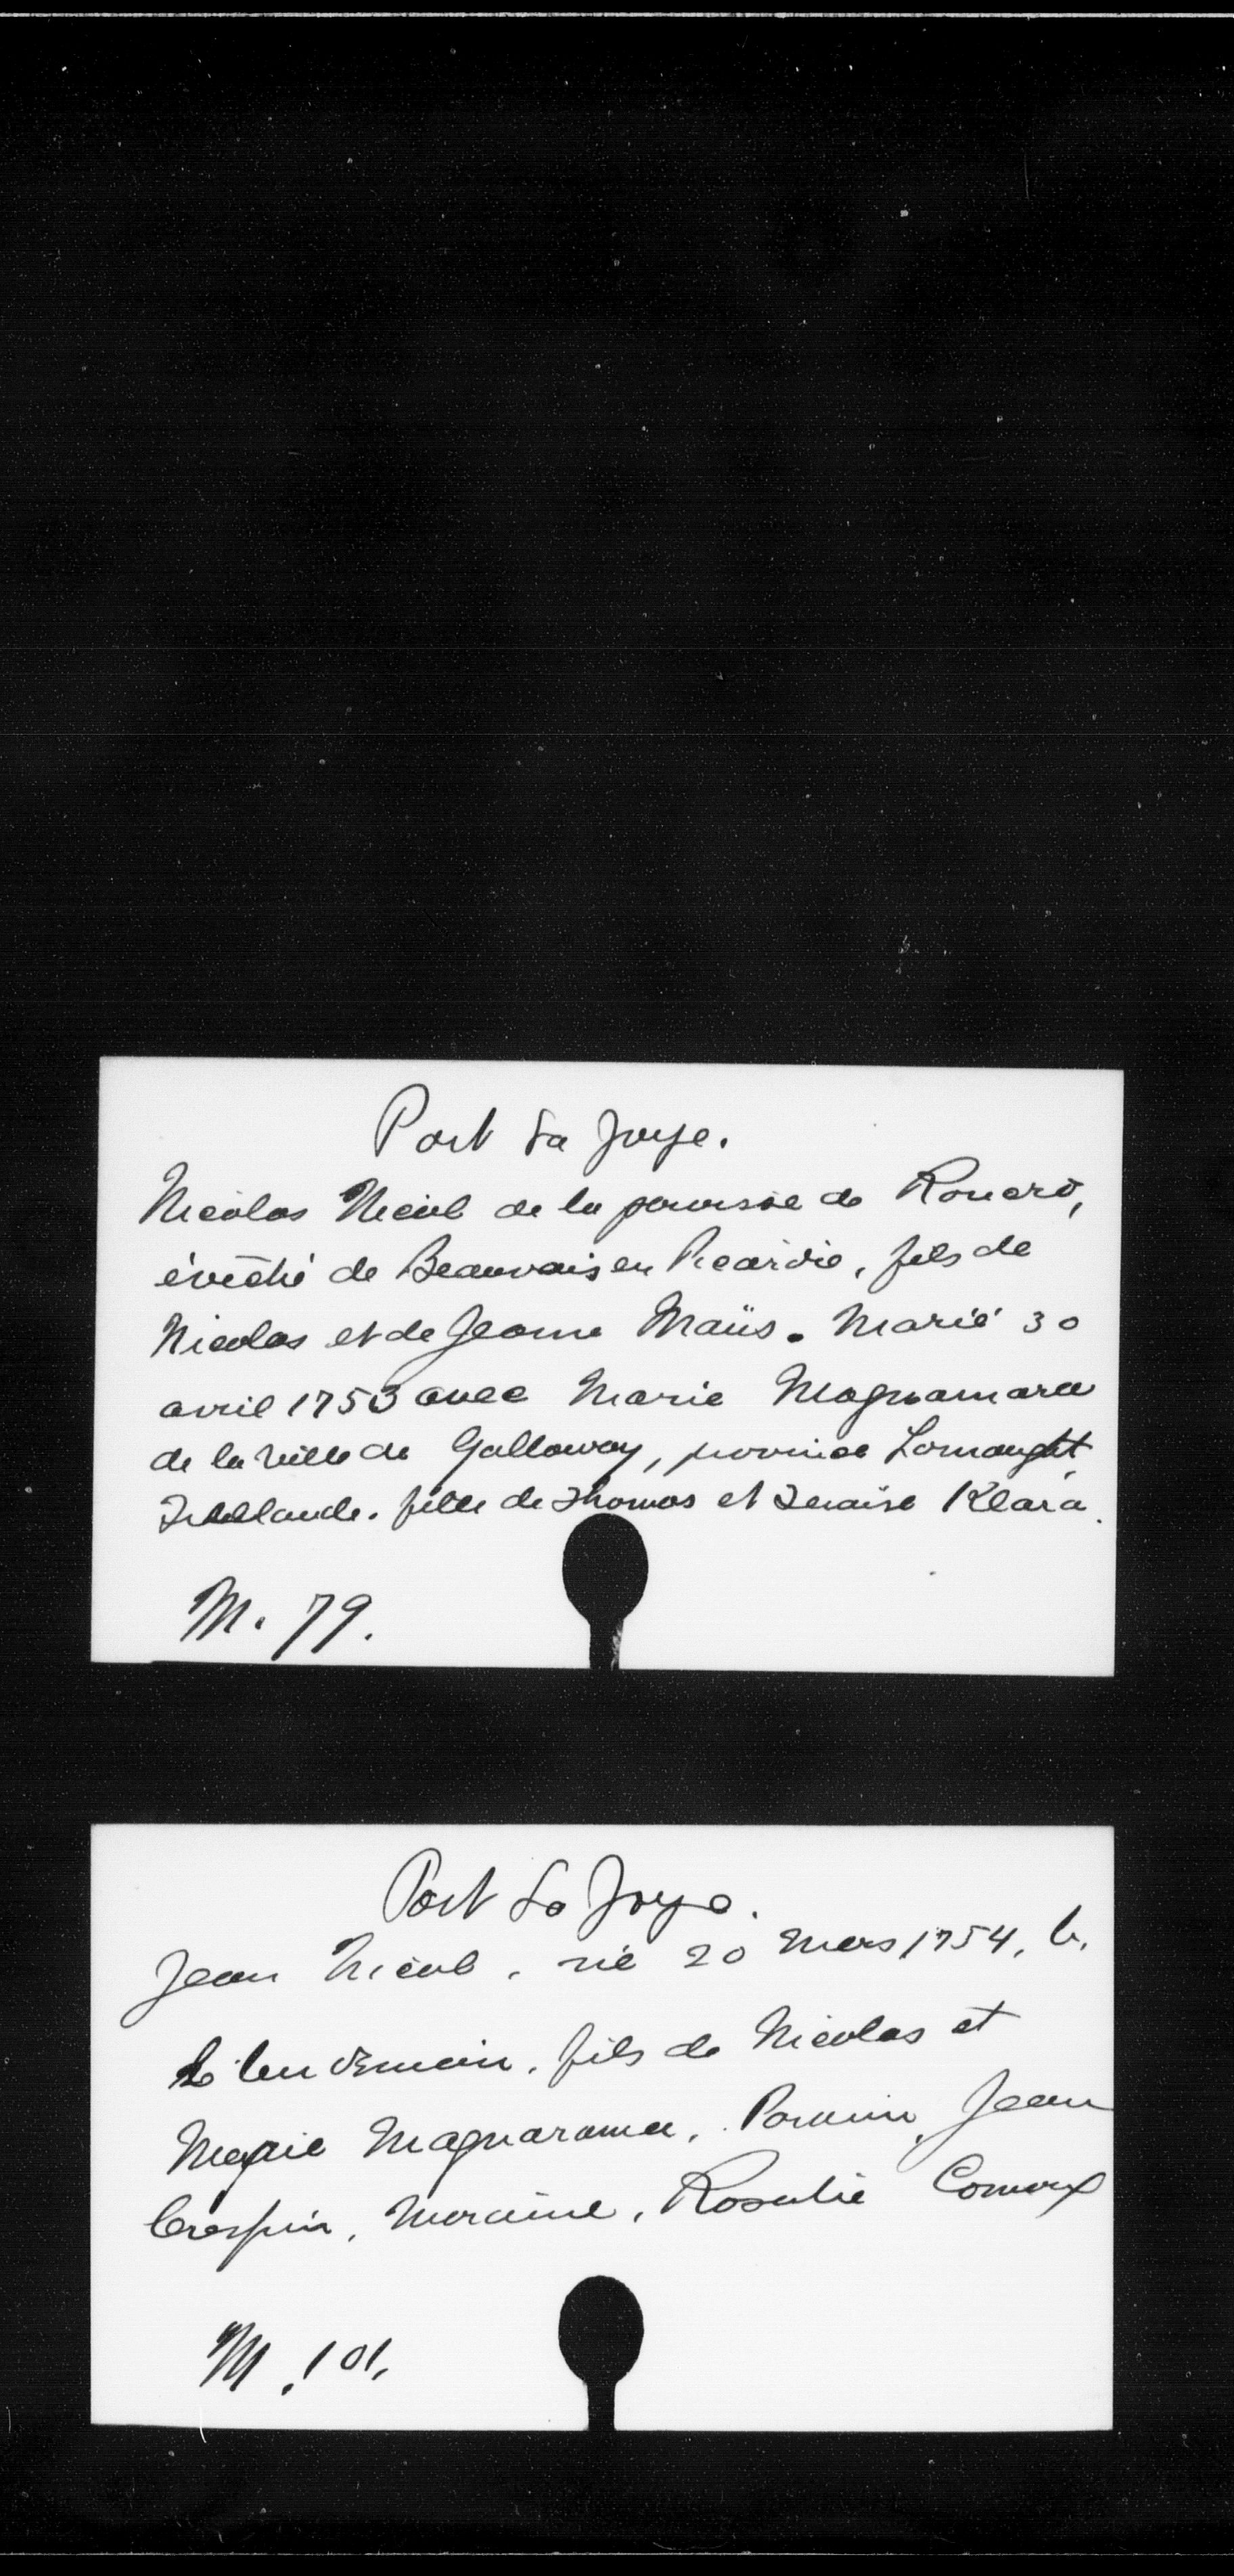 Port La Joye.
Nicolas Nicol de la paroisse de Rouero,
évêché de Beauvais en Picardie, fils de
Nicolas et de Jeanne Maüs. Marié 30
avril 1753 avec Marie Magnamara
de la ville de Galloway, province Lonaught
Irlande. fille de Thomas et Klara.
M. 79.
Port La Joye.
Jean Nicol, né 20 Mars 1754, b.
le lendemain, fils de Nicolas et
Marie Magnarama, Parrain, Jean
Crespin, Maraine, Rosalie Comoux
M. 101.